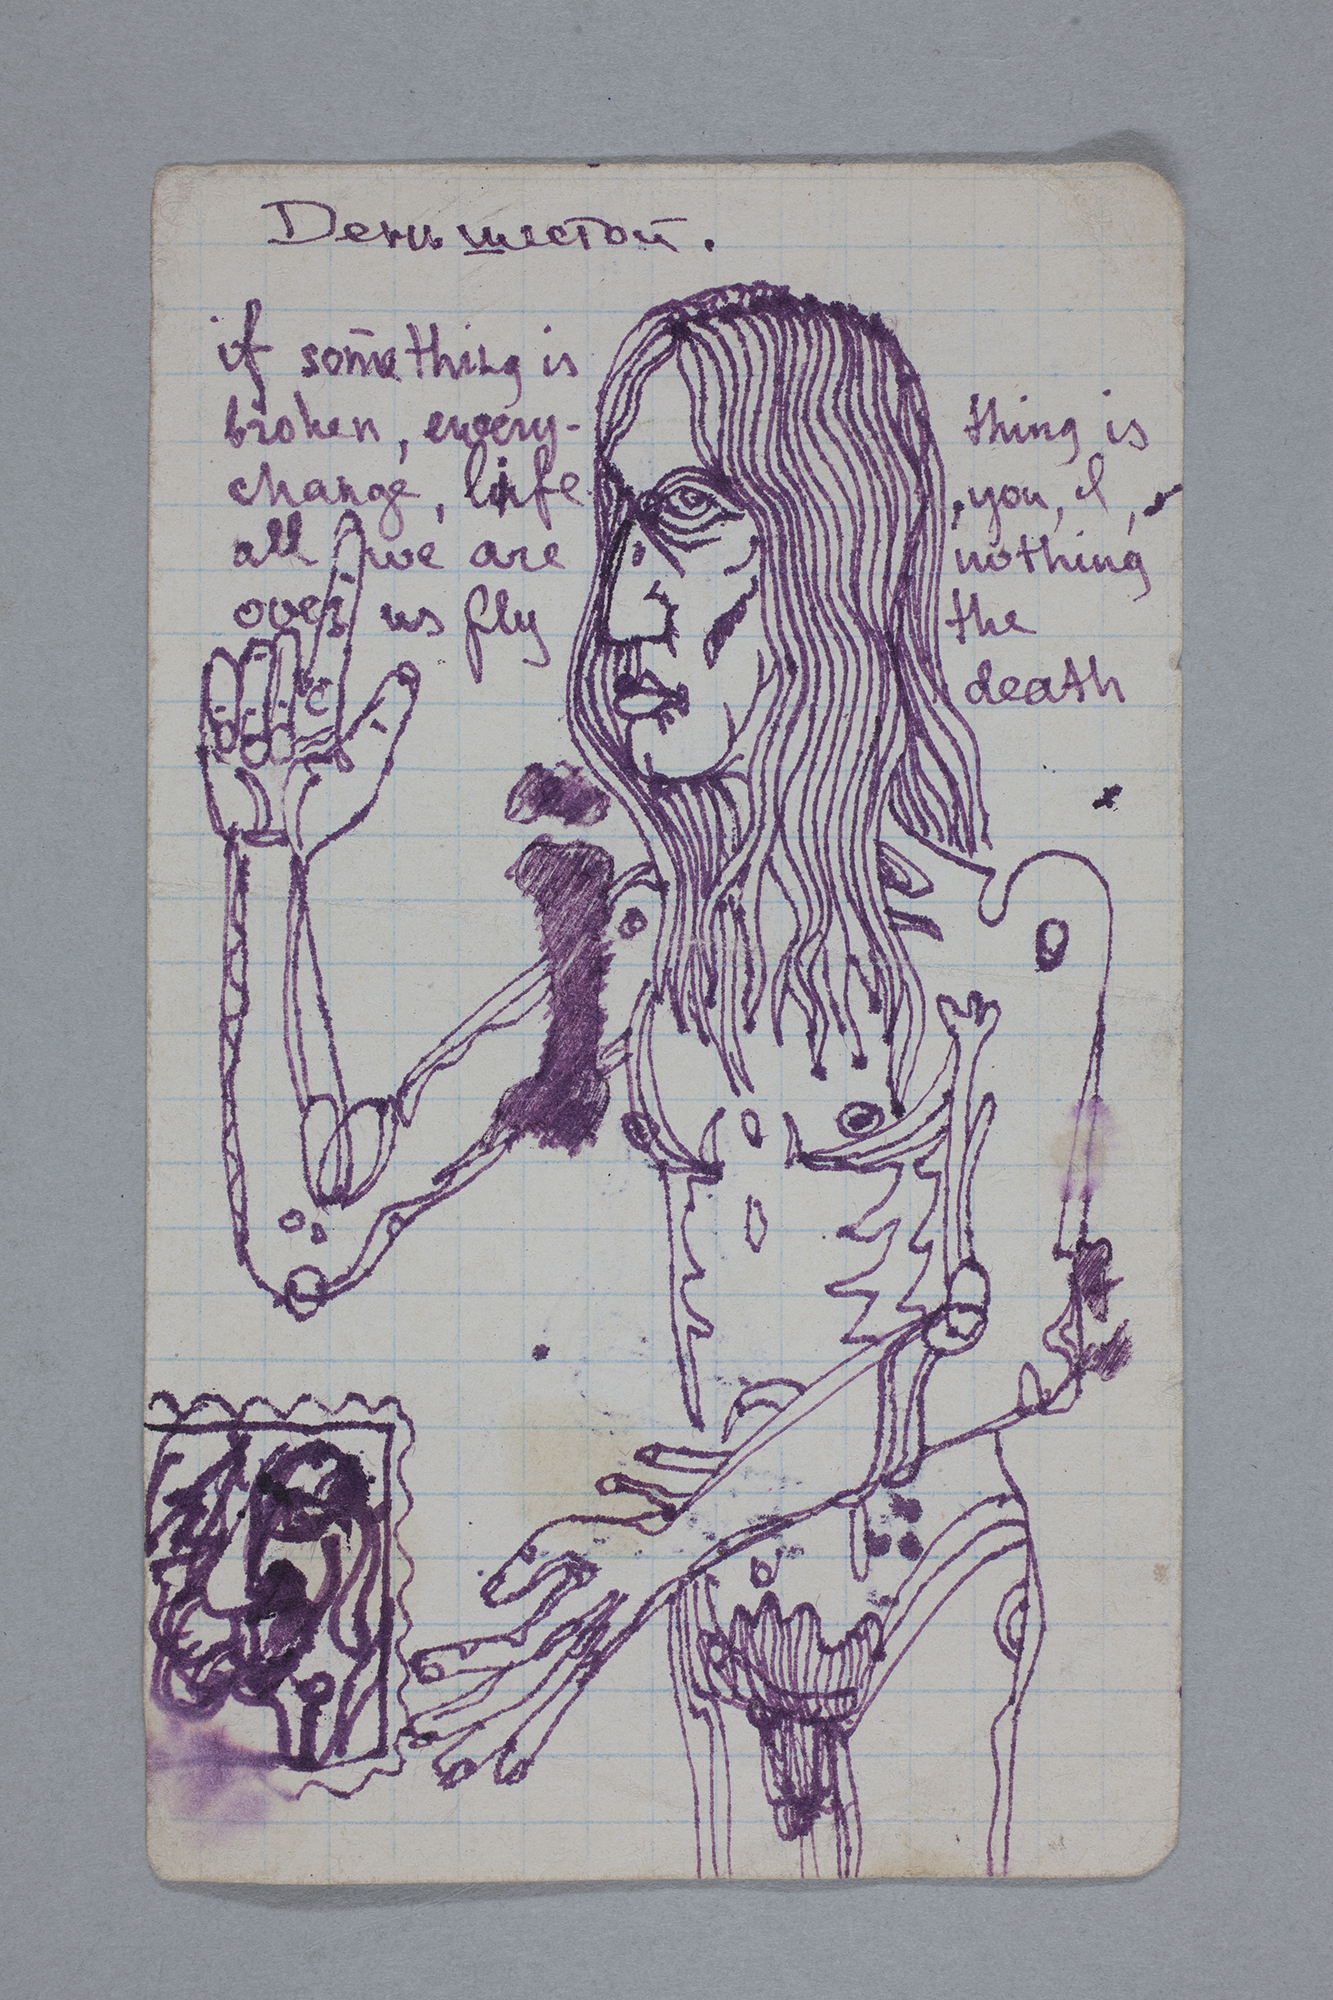 День шестой.
if something is
broken, every- thing is
change, life , you, I,
all we are nothing
over us fly the
death